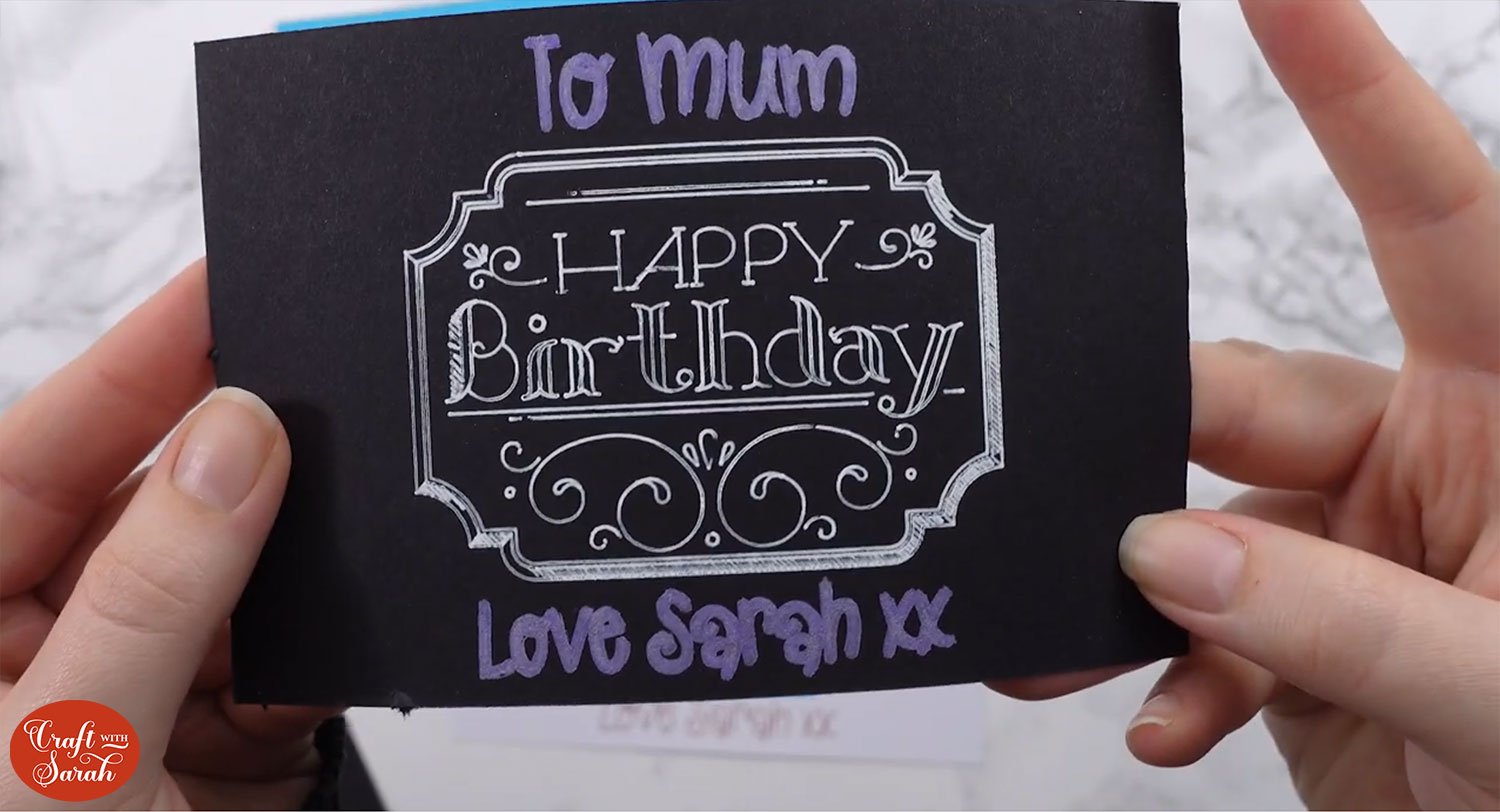 To Mum
HAPPY
Birthday
Love Sarah xx
Love Sarah xx
Craft WITH
Sarah